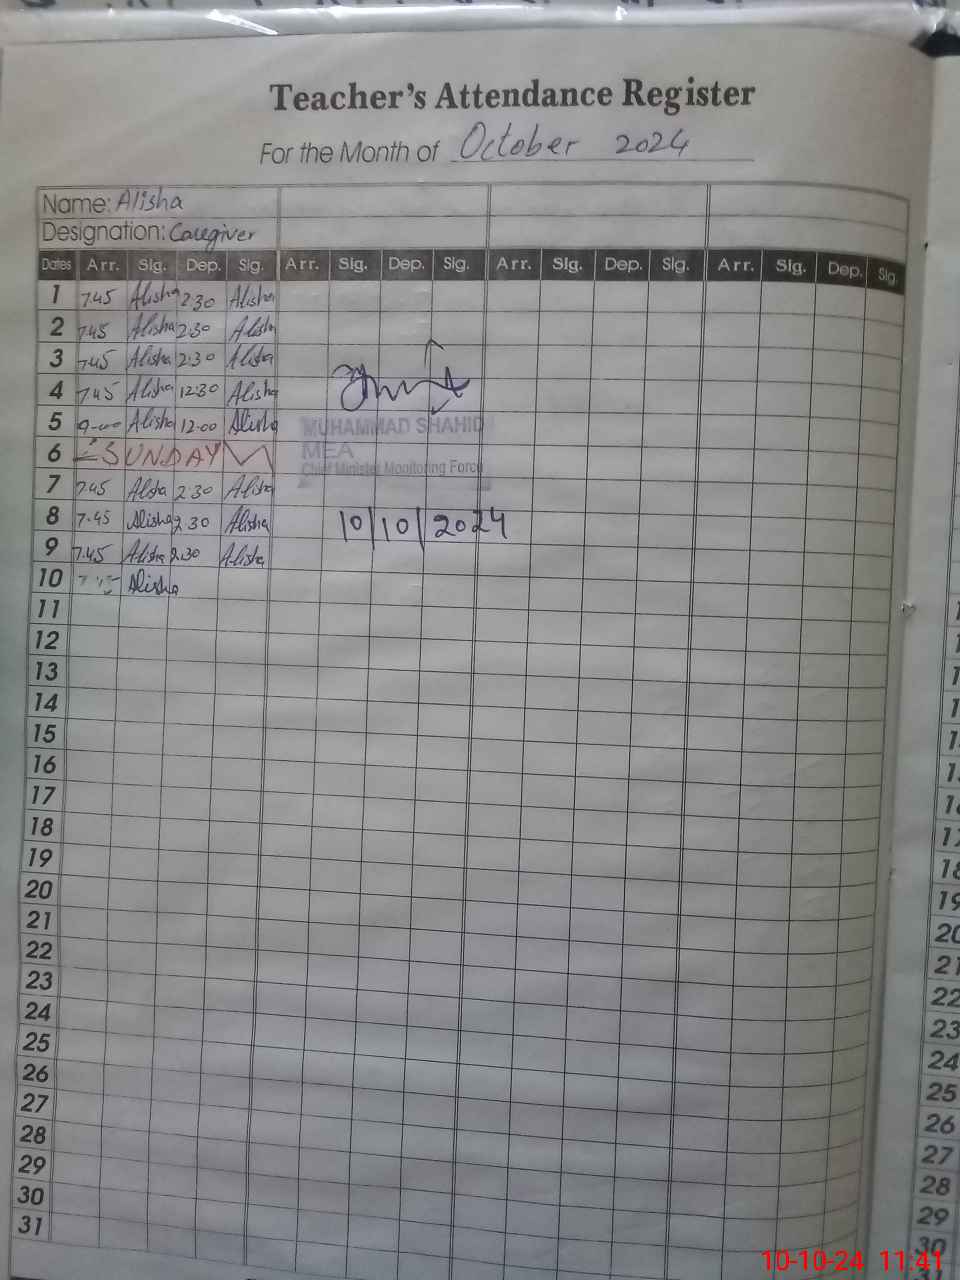 Teacher's Attendance Register
For the Month of October 2024
Name: Alisha
Designation: Caregiver
Dates Arr. Sig. Dep. Sig. Arr. Sig. Dep. Sig. Arr. Sig. Dep. Sig. Arr. Sig. Dep. Sig.
1 7.45 Alisha 2:30 Alisha
2 7.45 Alisha 2:30 Alisha
3 7.45 Alisha 2:30 Alisha
4 7.45 Alisha 12:30 Alisha
5 9-00 Alisha 12-00 Alisha
MUHAMMAD SHAHID
6 SUNDAY
MEA
Chief Minister Monitoring Force
7 7.45 Alisha 2:30 Alisha
8 7.45 Alisha 2.30 Alisha
10/10/2024
9 7.45 Alisha 2.30 Alisha
10 Alisha
11
12
13
14
15
16
17
18
19
20
21
22
23
24
25
26
27
28
29
30
31
19
20
21
22
23
24
25
26
27
28
29
30
10-10-24 11:41